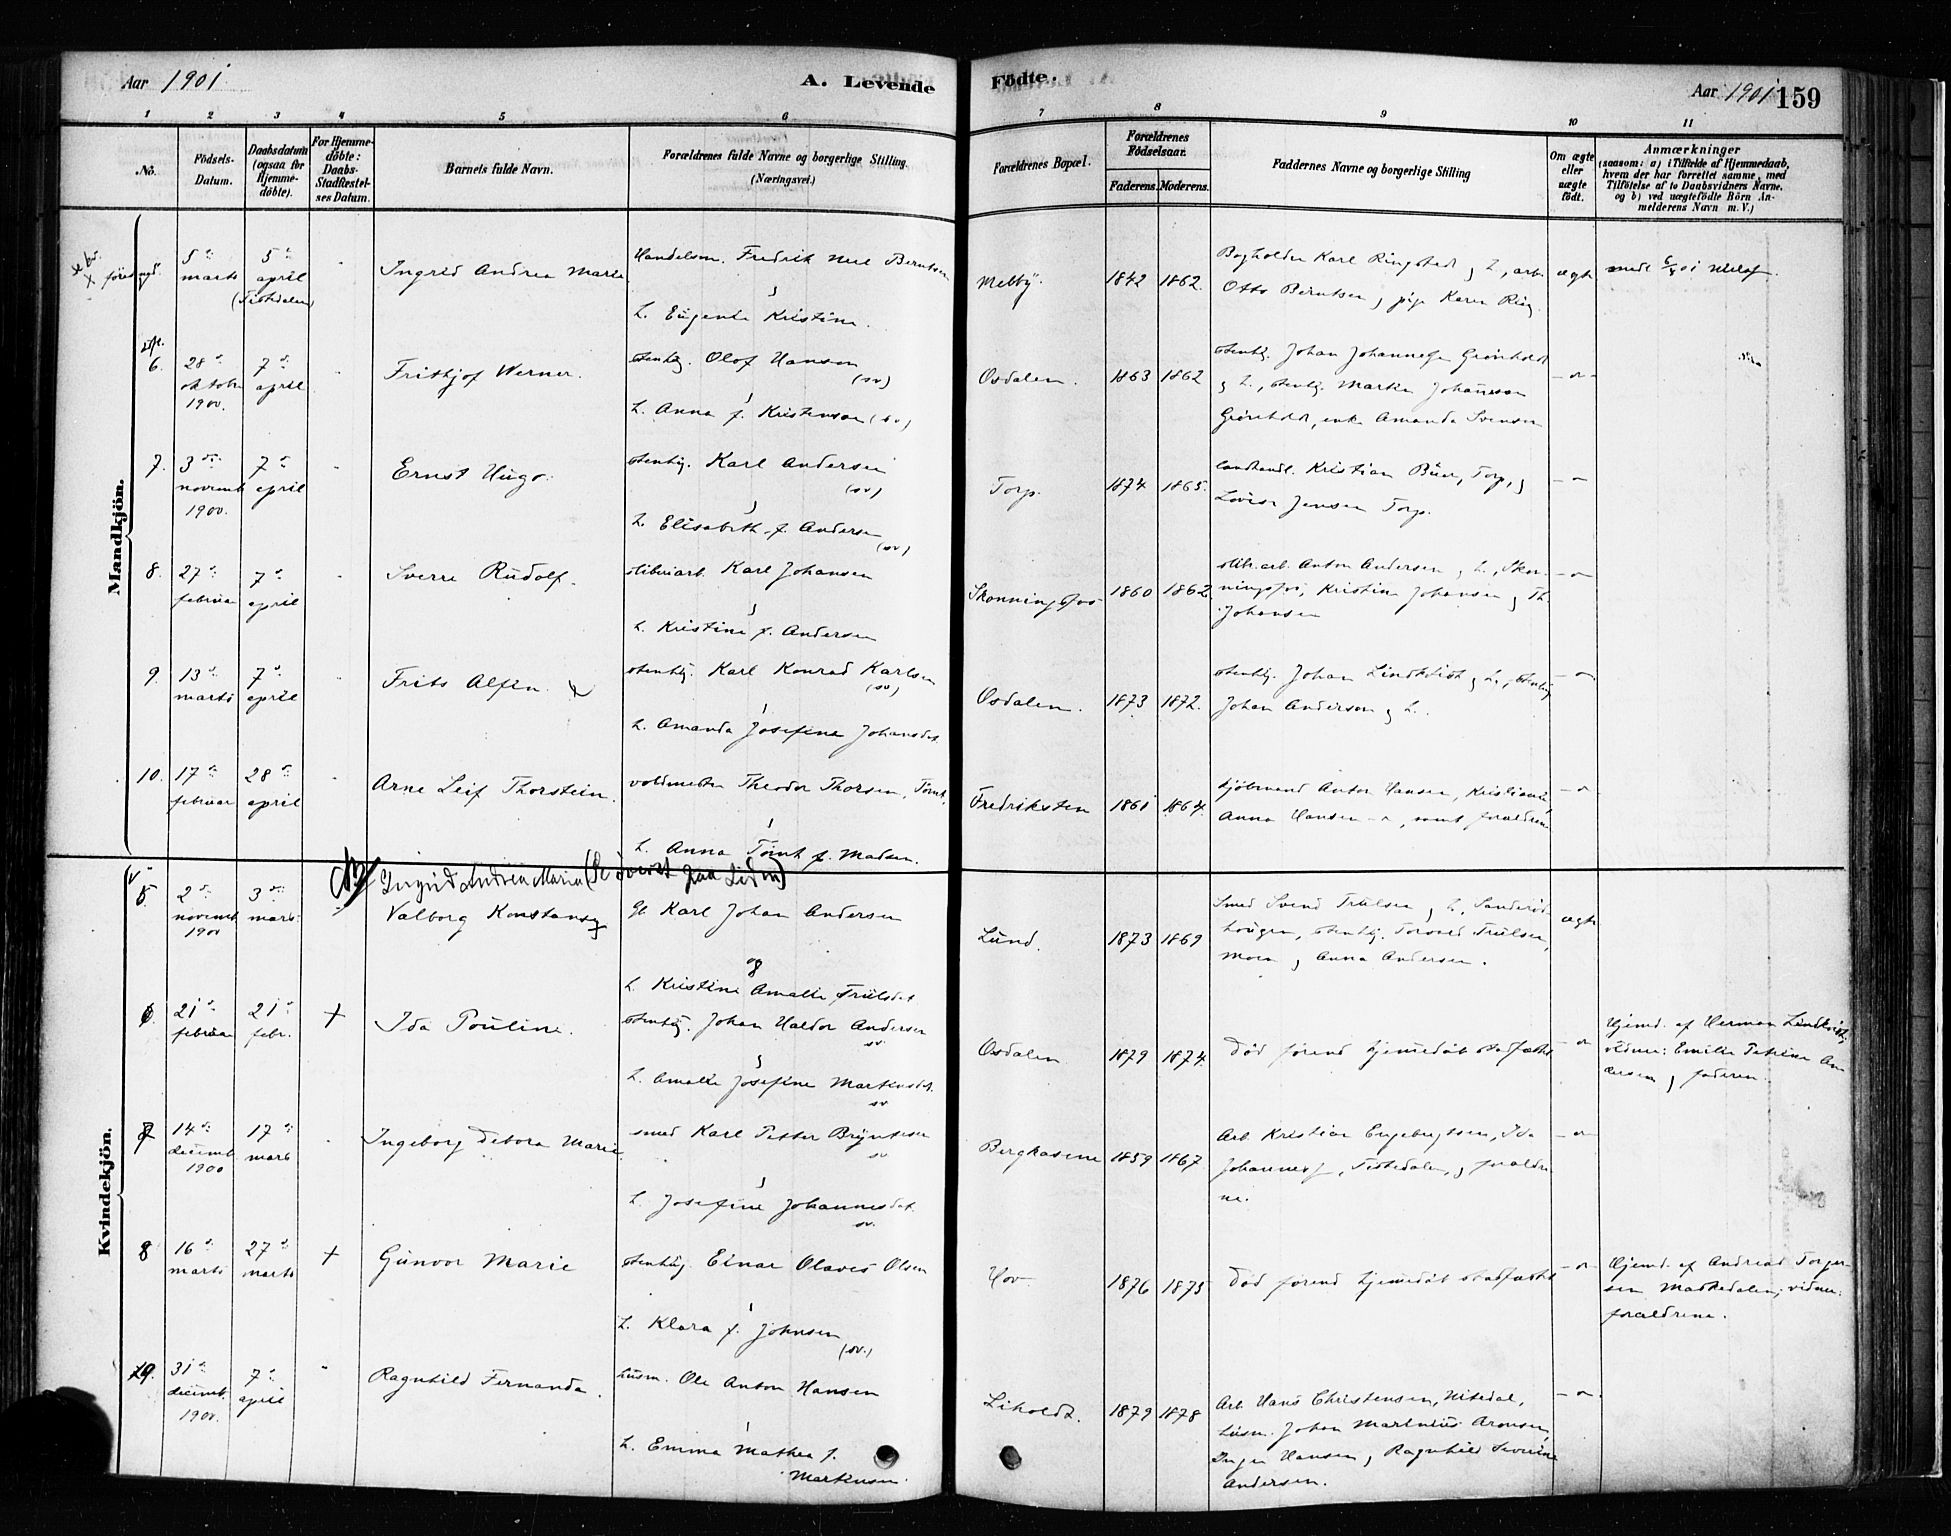 Aar 1901
A. Levende
Födte.
Aar 1901
159
1 2 3 4 5 6 7 8 9 10 11
No.
Födsels-Datum.
Daabsdatum (ogsaa for Hjemme-döbte).
For Hjemme-döbte: Daabs-Stadfæstel-ses Datum.
Barnets fulde Navn.
Forældrenes fulde Navne og borgerlige Stilling.
(Næringsvei.)
Forældrenes Bopæl.
Forældrenes Födselsaar.
Faderens. Moderens.
Faddernes Navne og borgerlige Stilling
Om ægte eller uægte født.
Anmærkninger
(saasom: a) i Tilfælde af Hjemmedaab,
hvem der har forrettet samme, med
Tilföielse af to Daabsvidners Navne,
og b) ved uægtefödte Börn An-
melderens Navn m. V.)
Mandkjön.
5 marts
5 april
(Tistedalen)
Ingrid Andrea Marie
Handelsm. Fredrik Berntsen
L. Eugenie Kristine.
Melby.
1842 1862.
Bogholder Karl Ringstad g L, arb.
Otto Berntsen g pige Karen
ægte
6.
28 oktober 1900.
7 april
Frithjof Werner.
stenhg. Olof Hansen (sv)
L. Anna f. Kristenson (sv)
Osdalen.
1863 1862
stenhg. Johan
g L, stenhg. Martin Johannsson
enke Amanda Svensen
7.
3 novemb 1900.
7 april
Ernst Hugo.
stenhg. Karl Andersen (sv)
L. Elisabeth f. Andersen (sv)
Torp.
1874 1865.
landhandl. Kristian Buer, Torp, g
Lovise Jensen Torp.
8.
27 februar
7 april
Sverre Rudolf.
sliberiarb. Karl Johansen
L. Kristine f. Andersen
Skonningsfos
1860 1862.
slib.arb. Anton Andersen g L, Skon-
ningsfos, Kristine Johansen g Th.
Johansen
9.
13 marts
7 april
Frits Alfin.
stenhg. Karl Konrad Karlsen (sv)
L. Amanda Josefine Johansdat.
Osdalen.
1873 1872.
stenhg. Johan Lindkvist g L, stenhg
Johan Anderson g L.
10.
17 februar
28 april
Arne Leif Thorstein.
voldmester Theodor Thorsen Tömt,
L. Anna Tömt f. Madsen.
Fredriksten
1861 1864.
Anton Hansen, Kristiania,
Anna Hansen, samt forældrene
Kvindekjön.
Ingrid Andrea Marie (Se överst paa Siden)
5.
2 novemb 1900
3 marts
Valborg Konstanse
Gl. Karl Johan Andersen
og
L. Kristine Amalie Trulsdat
Lund.
1873 1869
Smed Svend Trulsen g L, Sanderöd-
haugen, stenhg. Torvald Trulsen,
Moen g Anna Andersen.
ægte
6.
21 februar
21 febr.
+
Ida Pouline.
stenhg. Johan Haldor Andersen sv
L. Amalie Josefine Markusdat. sv
Osdalen
1879 1874.
Död förend hjemmedöbt stadfæstet
Hjemd. af Herman Lindkvist,
vidner: Emilie Petrine An-
dersen g faderen.
7
14 decemb 1900
17 marts
Ingeborg Debora Marie
smed Karl Petter Bryntesen sv
L. Josefine Johannesdat. sv.
Bergkasene
1859 1867.
Arb. Kristian Engebregtsen, Ida
Tistedalen, g forældre-
ne.
8
16 marts
27 marts
+
Gunvor Marie
stenhug Einar Olaves Olsen
L. Klara f. Johnsen (sv.)
Hov.
1876 1875
Död förend hjemmedöbt stadfæstet
Hjemd. af Andreas Torger-
sen vidner:
forældrene.
9.
31 decemb. 1900.
7 april
Ragnhild Fernanda.
husm. Ole Anton Hansen
L. Emma Mathea f.
Markusen.
Liholdt.
1879 1878
Arb. Hans Christensen, Nitedal,
husm. Johan Martinius Aronsen,
Inga Hansen g Ragnhild Severine
Andersen.